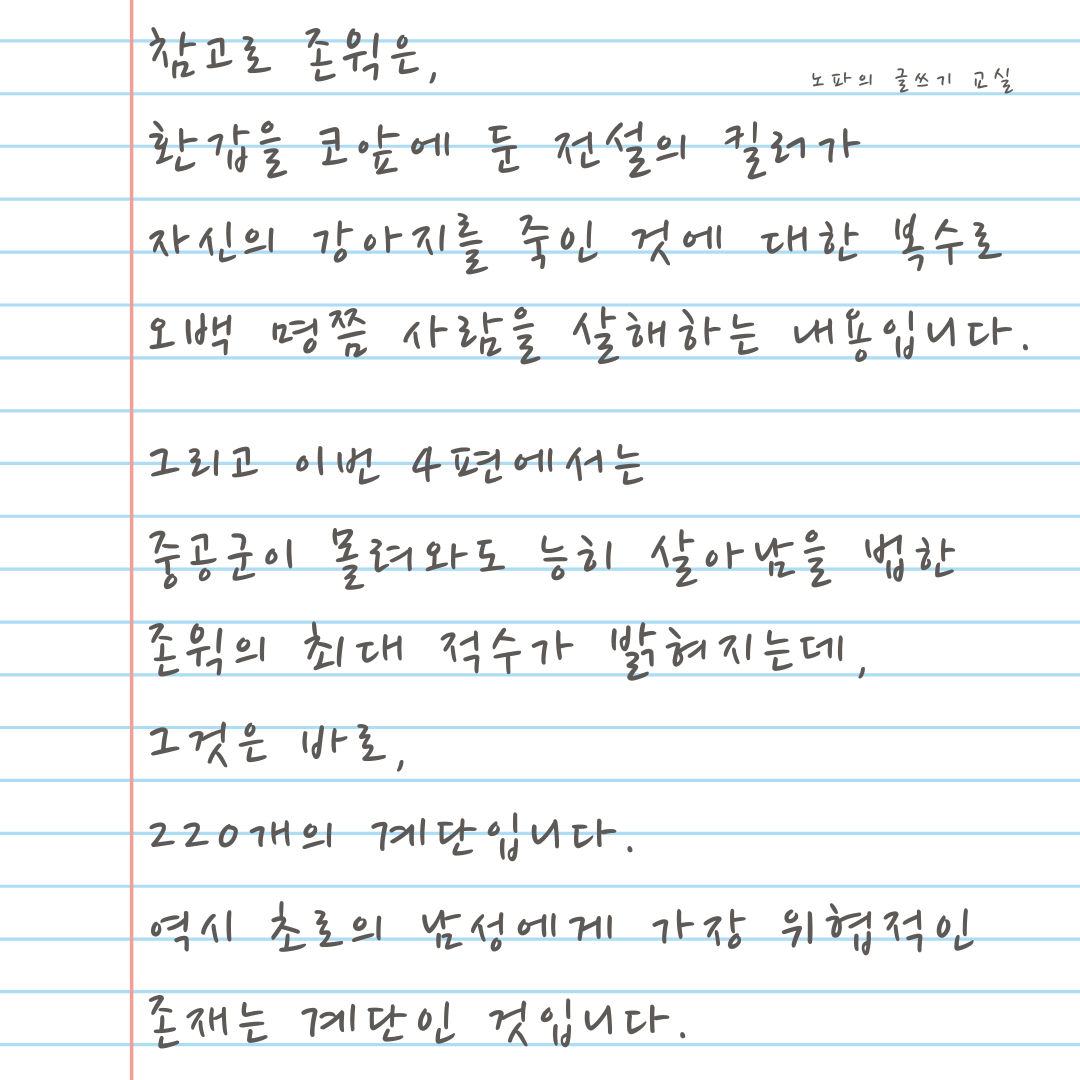 참고로 존윅은,
노파의 글쓰기 교실
환갑을 코앞에 둔 전설의 킬러가
자신의 강아지를 죽인 것에 대한 복수로
오백 명쯤 사람을 살해하는 내용입니다.
그리고 이번 4편에서는
중공군이 몰려와도 능히 살아남을 법한
존윅의 최대 적수가 밝혀지는데,
그것은 바로,
220개의 계단입니다.
역시 초로의 남성에게 가장 위협적인
존재는 계단인 것입니다.